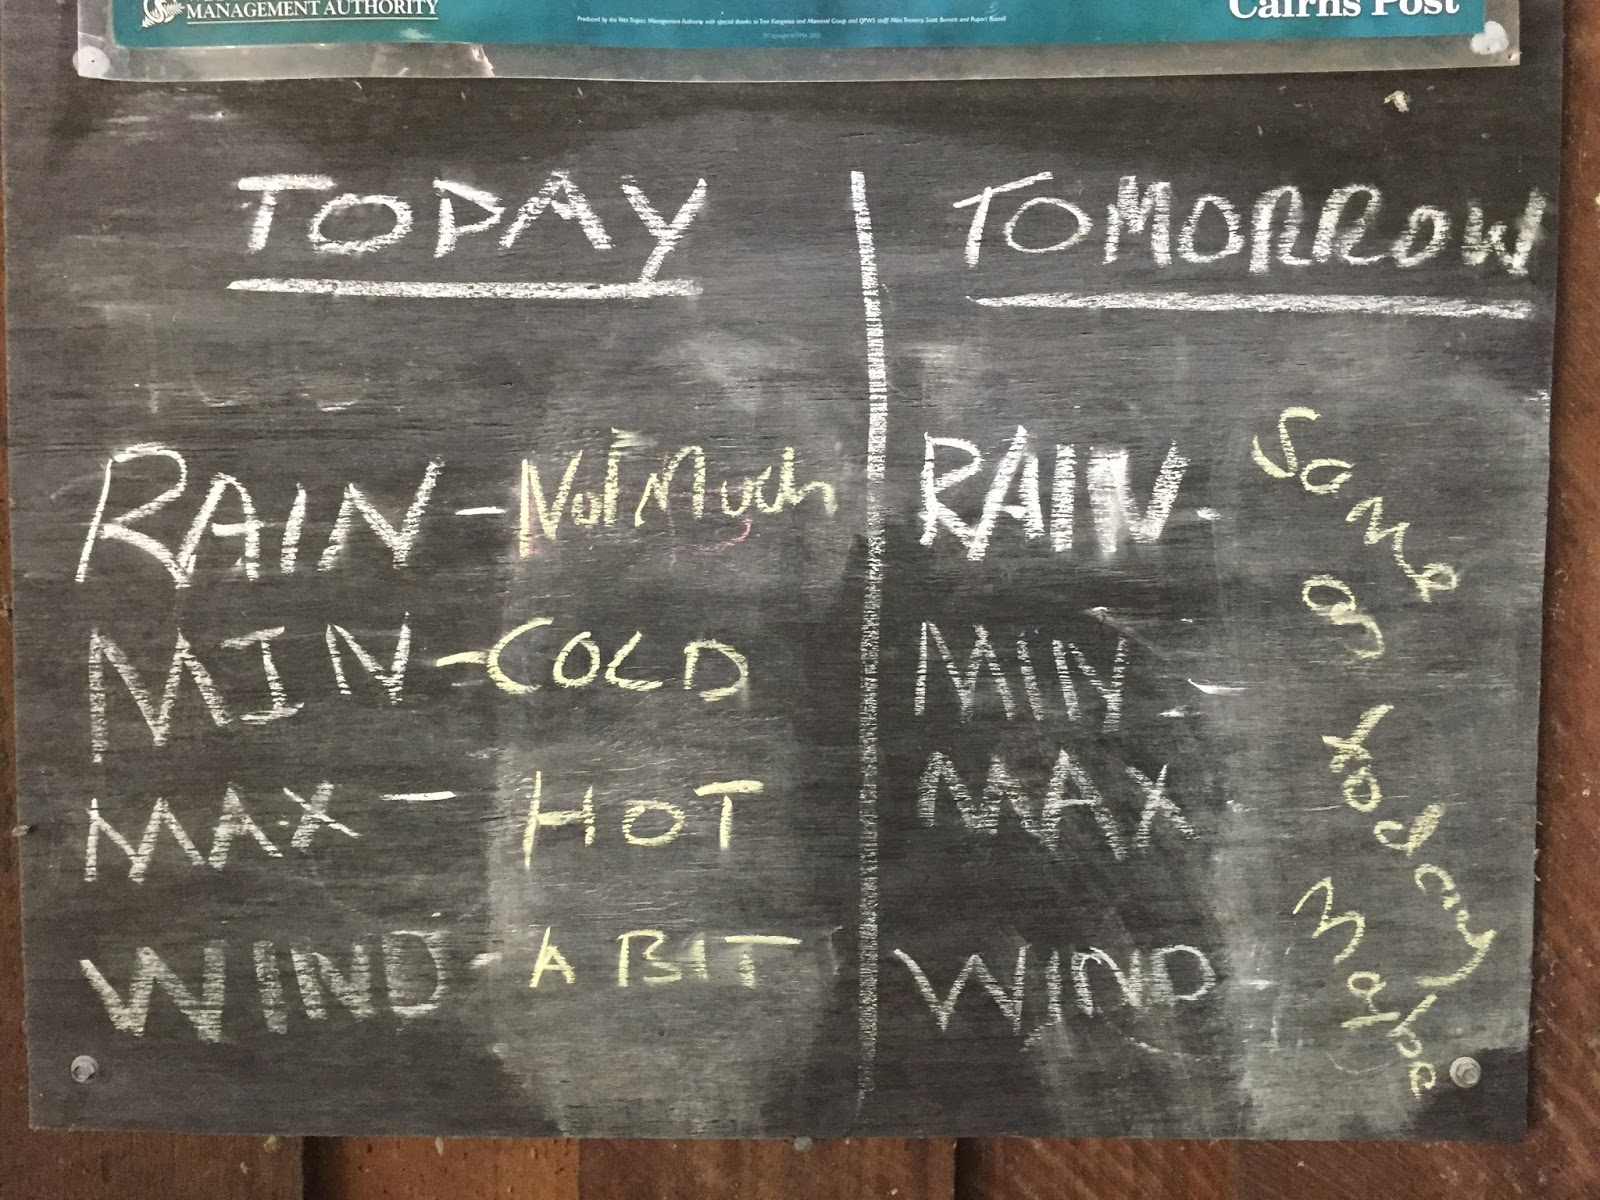 MANAGEMENT AUTHORITY
Produced by the Wet Tropics Management Authority with special thanks to Tree Kangaroo and Mammal Group and QPWS staff Mike Trenerry, Scott Burnett and Rupert Russell
Cairns Post
TODAY
RAIN - Not Much
MIN - COLD
MAX - HOT
WIND - A BIT
TOMORROW
RAIN -
MIN -
MAX
WIND -
Same
as
today
Maybe